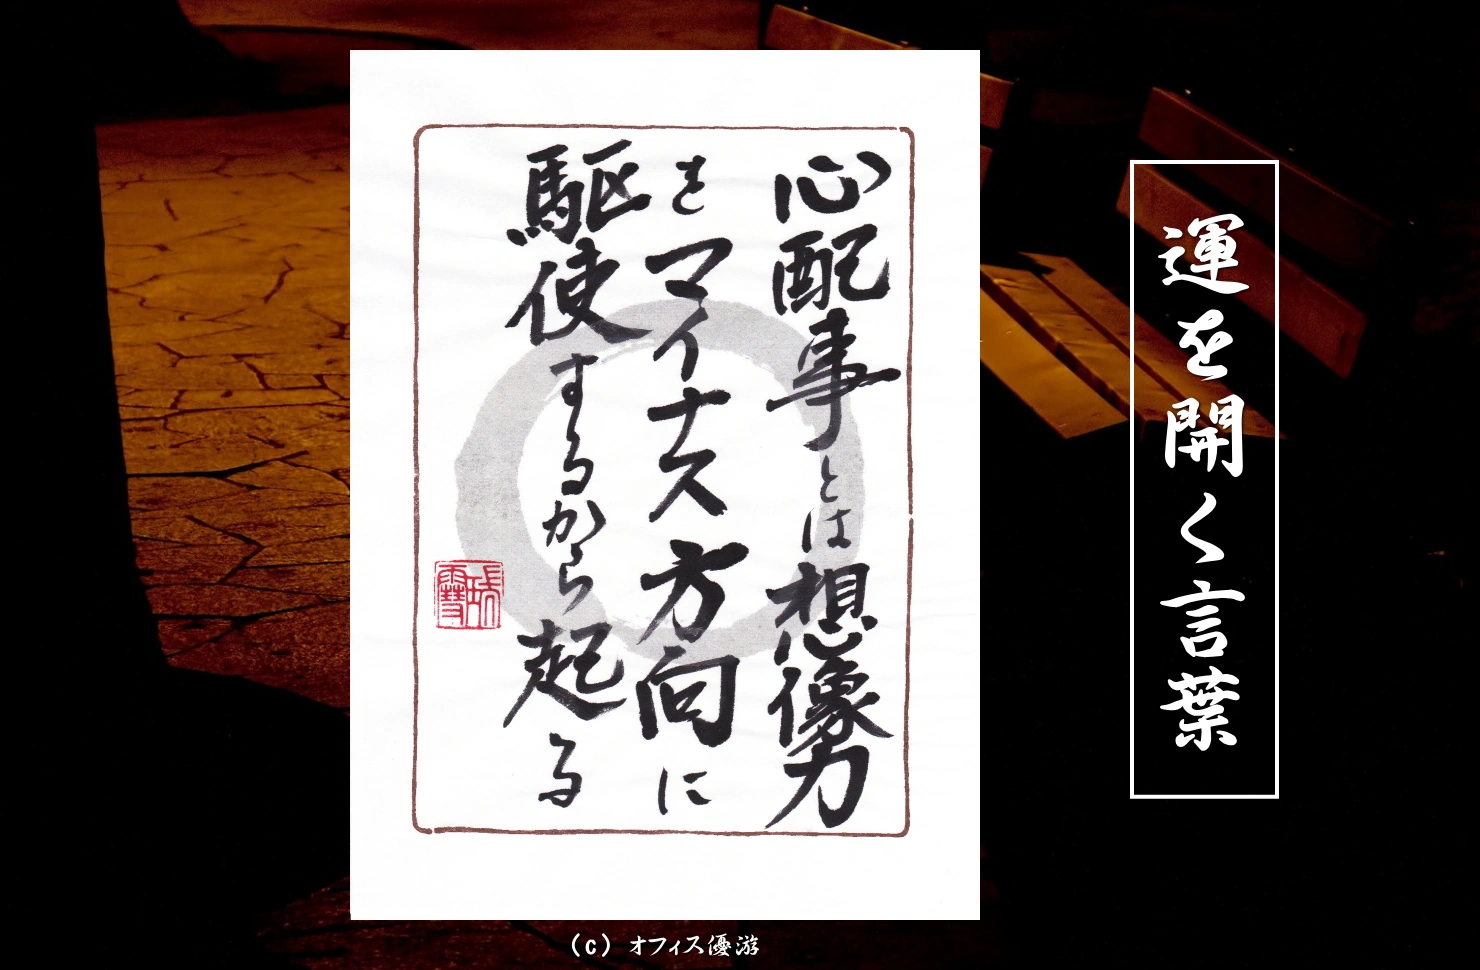 運を開く言葉
心配事とは想像力
をマイナス方向に
駆使するから起る
(c) オフィス優游